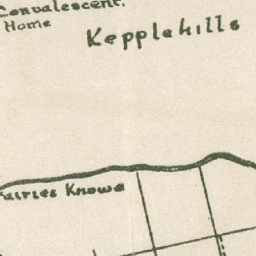 Convalescent.
Home
Kepplehills
Fairies Knowe